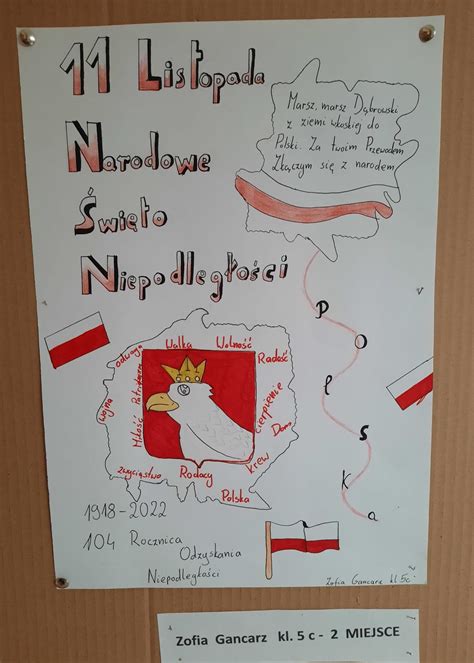 11 Listopada
Narodowe
Święto
Niepodległości
Marsz, marsz Dąbrowski
z ziemi włoskiej do
Polski. Za twoim Przewodem
Złączym się z narodem
POlSKa
Walka
Wolność
Radość
odwaga
wojna
Miłość
Patriotyzm
cierpienie
Dom
krew
zwycięstwo
Rodacy
Polska
1918-2022
104 Rocznica
Odzyskania
Niepodległości
Zofia Gancarz kl 5c
Zofia Gancarz kl. 5 c - 2 MIEJSCE